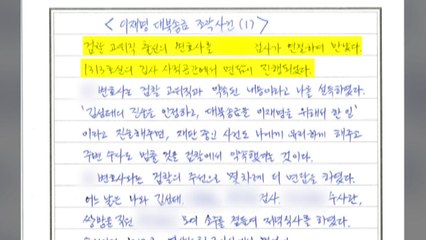 < 이재명 대북송금 조작사건 (1) >
검찰 고위직 출신의 변호사를 검사가 연결하여 만났다.
1313호실의 검사 사적공간에서 면담이 진행되었다.
변호사는 검찰 고위직과 약속된 내용이라고 나를 설득하였다.
'김성태의 진술을 인정하고, 대북송금을 이재명을 위해서 한 일'
이라고 진술해주면, 재판 중인 사건도 나에게 유리하게 해주고
주변 수사도 멈출 것을 검찰에서 약속했다는 것이다.
변호사와는 검찰의 주선으로 몇차례 더 면담을 하였다.
어느 날은 나와 김성태, 검사, 수사관,
쌍방울 직원 모여 소주를 곁들여 저녁식사를 하였다.